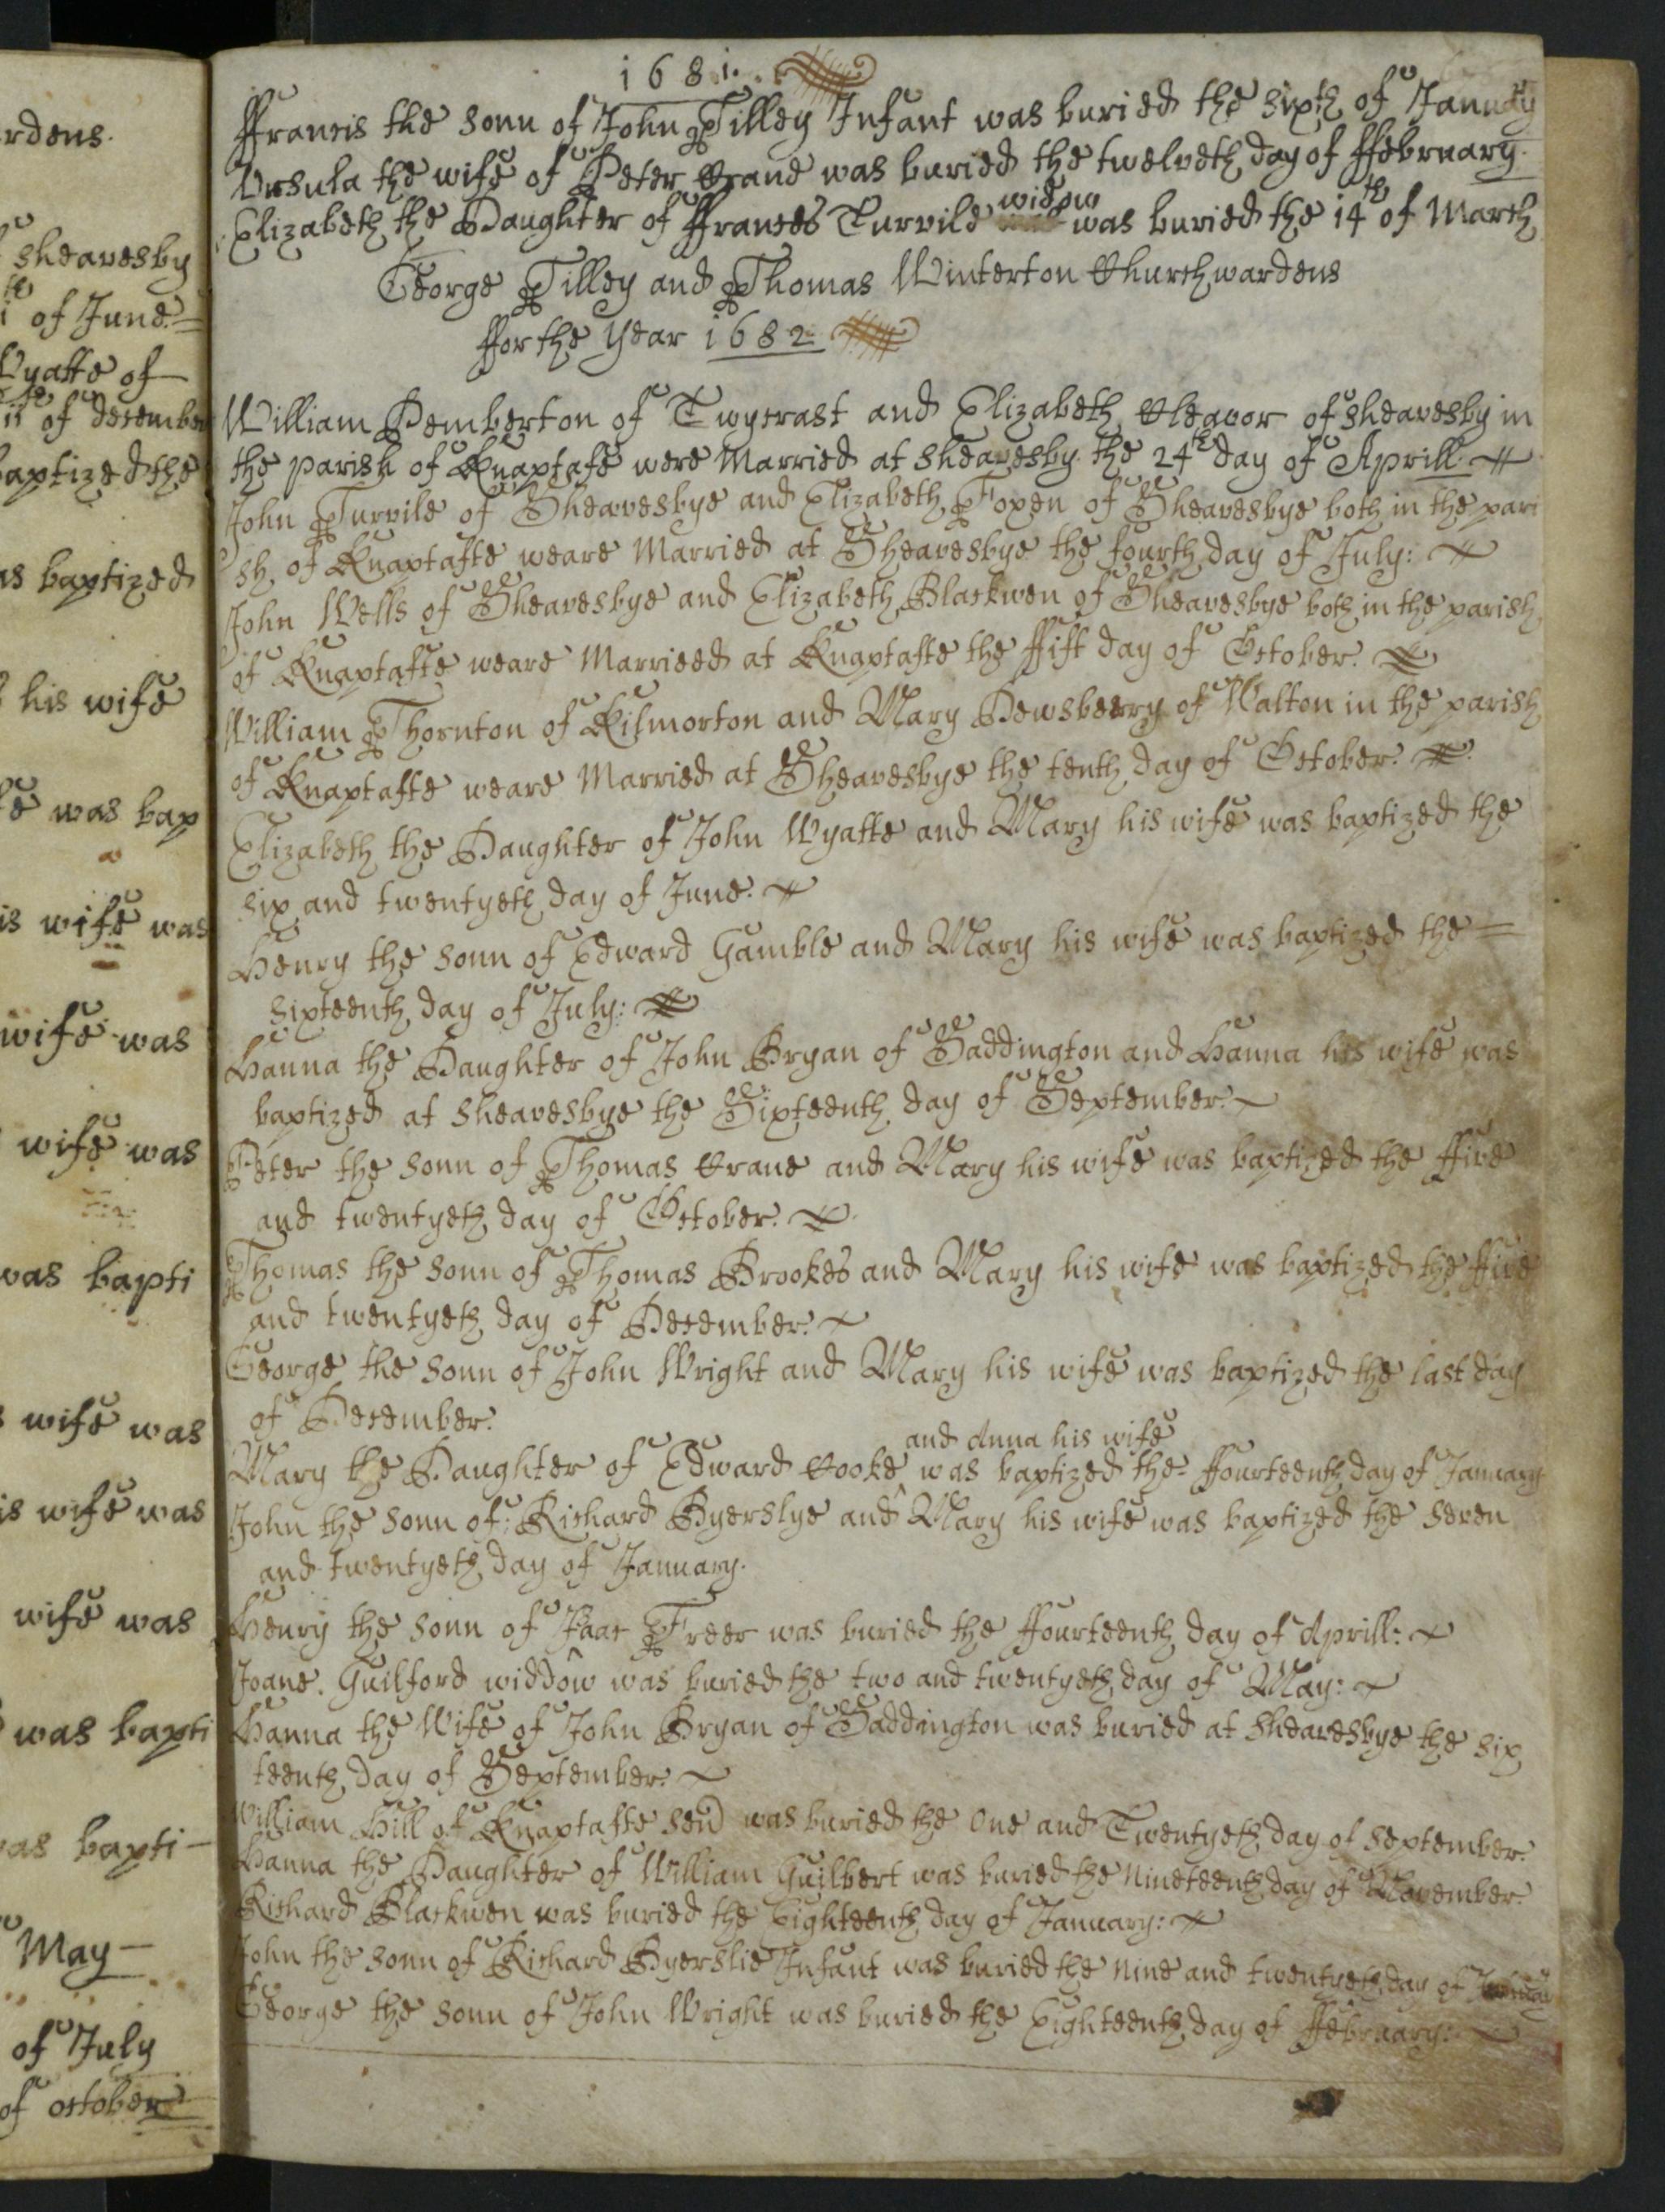 rdens.
sheavesby
i of June.
Wyatte of
of december
baptized the
as baptized
his wife
was bap
is wife was
wife was
wife was
was bapti
wife was
is wife was
wife was
was bapti
was bapti-
May
of July
of october
1681.
ffrancis the sonn of John Tilley Infant was buried the sixth of January
Ursula the wife of Peter Crane was buried the twelveth day of ffebruary.
widow
Elizabeth the Daughter of ffrances Turvile was buried the 14th of March
George Tilley and Thomas Winterton Churchwardens
ffor the Year 1682
William Pemberton of Twycrast and Elizabeth Cleavor of sheavesby in
the parish of Knaptafe were Married at sheavesby the 24th day of Aprill.
John Turvile of Sheavesbye and Elizabeth Foxen of Sheavesbye both in the pari
sh of Knaptafte weare Married at Sheavesbye the fourth day of July:
John Wells of Sheavesbye and Elizabeth Blackwen of Sheavesbye both in the parish
of Knaptafte weare Marrieed at Knaptafte the ffift day of October.
William Thornton of Kilmorton and Mary Dewsberry of Walton in the parish
of Knaptafte weare Married at Sheavesbye the tenth day of October.
Elizabeth the Daughter of John Wyatte and Mary his wife was baptized the
six and twentyeth day of June.
Henry the sonn of Edward Gamble and Mary his wife was baptized the
sixteenth day of July:
Hanna the Daughter of John Bryan of Saddington and Hanna his wife was
baptized at sheavesbye the Sixteenth day of September.
Peter the sonn of Thomas Crane and Mary his wife was baptized the ffive
and twentyeth day of October.
Thomas the sonn of Thomas Brookes and Mary his wife was baptized the ffive
and twentyeth day of December.
George the sonn of John Wright and Mary his wife was baptized the last day
of December.
and Anna his wife
Mary the Daughter of Edward Cooke ^ was baptized the ffourteenth day of January
John the sonn of: Richard Byerslye and Mary his wife was baptized the seven
and twentyeth day of January.
Henry the sonn of Isaac Freer was buried the ffourteenth day of Aprill:
Joane. Guilford widdow was buried the two and twentyeth day of May:
Hanna the Wife of John Bryan of Saddington was buried at sheavesbye the six
teenth day of September.
William Hill of Knaptafte sen) was buried the One and Twentyeth day of September.
Hanna the Daughter of William Guilbert was buried the Nineteenth day of November.
Richard Blackwen was buried the Eighteenth day of January:
John the sonn of Richard Byerslie Infant was buried the nine and twentyeth day of January
George the sonn of John Wright was buried the Eighteenth day of ffebruary: